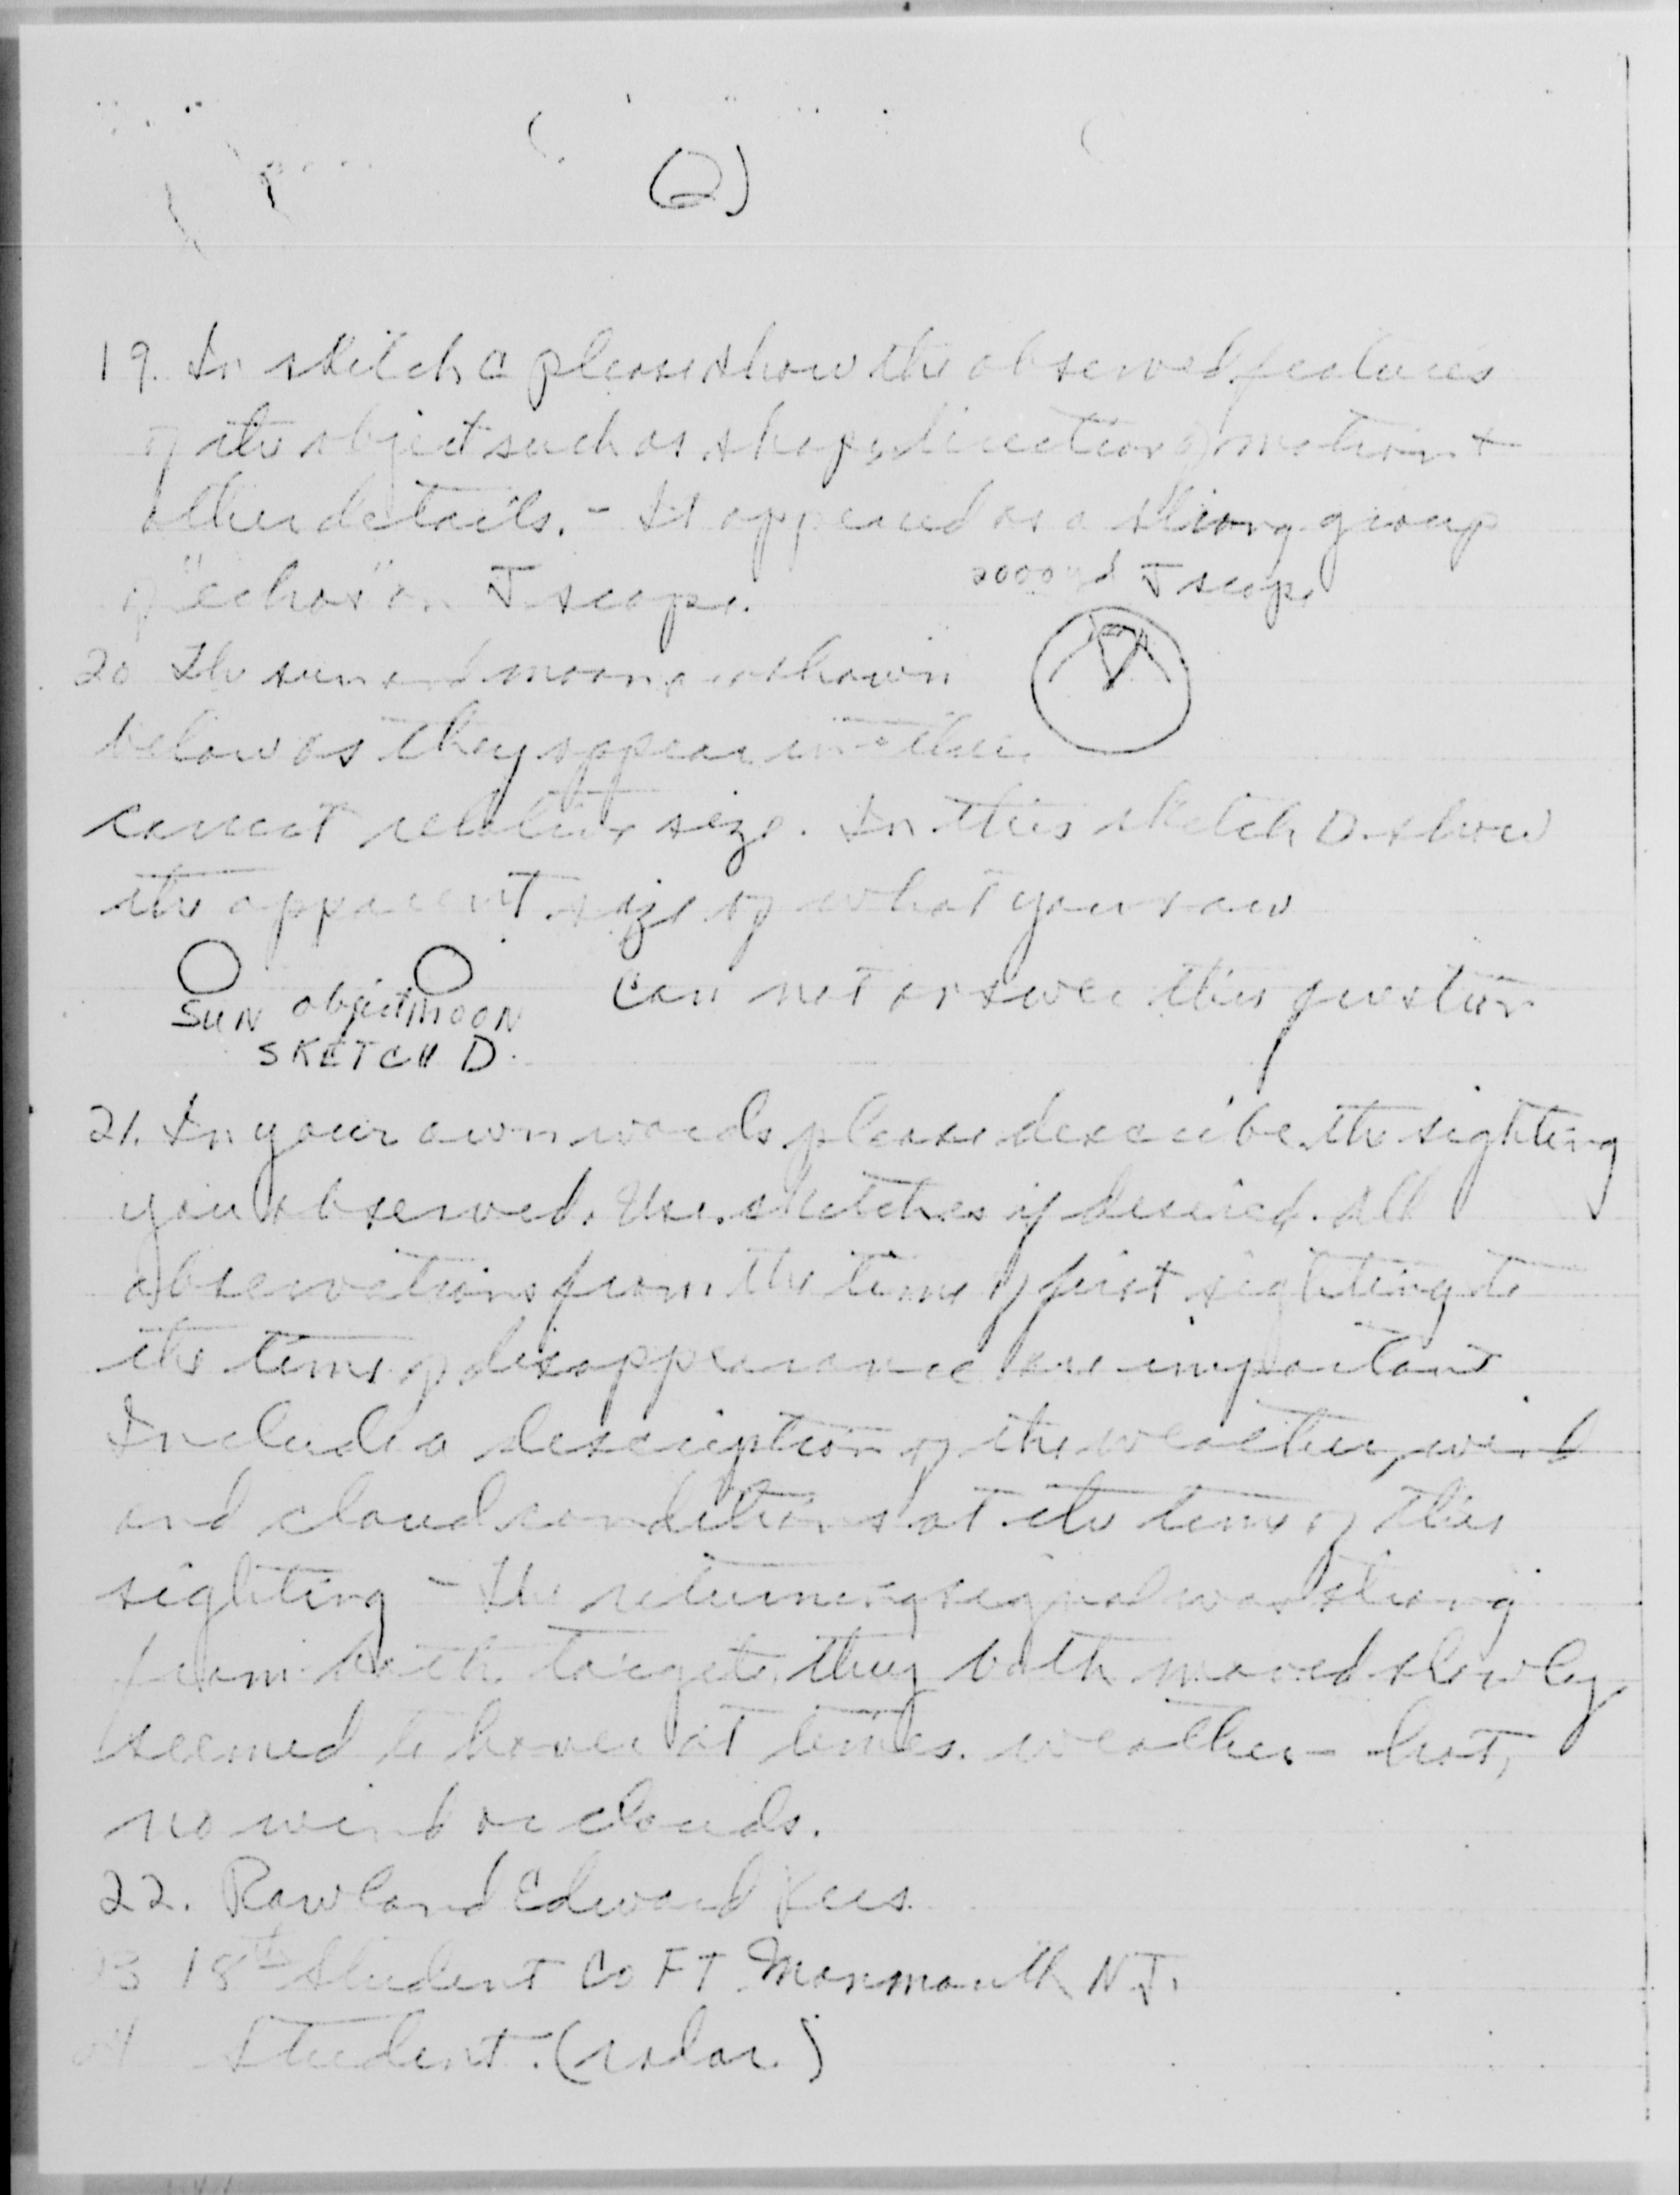 (2)
19. In sketch C please show the observed features
of the object such as shape, direction of motion +
other details. - It appeared as a strong group
of "echos" on J scope.
2000 yd J scope
20 The sun and moon are shown
below as they appear in the
correct relative size. In this sketch D show
the apparent size of what you saw
SUN object MOON
SKETCH D.
Can not answer this question
21. In your own words please describe the sighting
you observed. Use sketches if desired. All
observations from the time of first sighting to
the time of disappearance are important
Include a description of the weather, wind
and cloud conditions at the time of this
sighting - the returning signal was strong
from both targets, they both moved slowly
seemed to hover at times. weather - hot,
no wind or clouds.
22. Rowland Edward
18th Student Co FT Monmouth N.J.
Student. (radar)